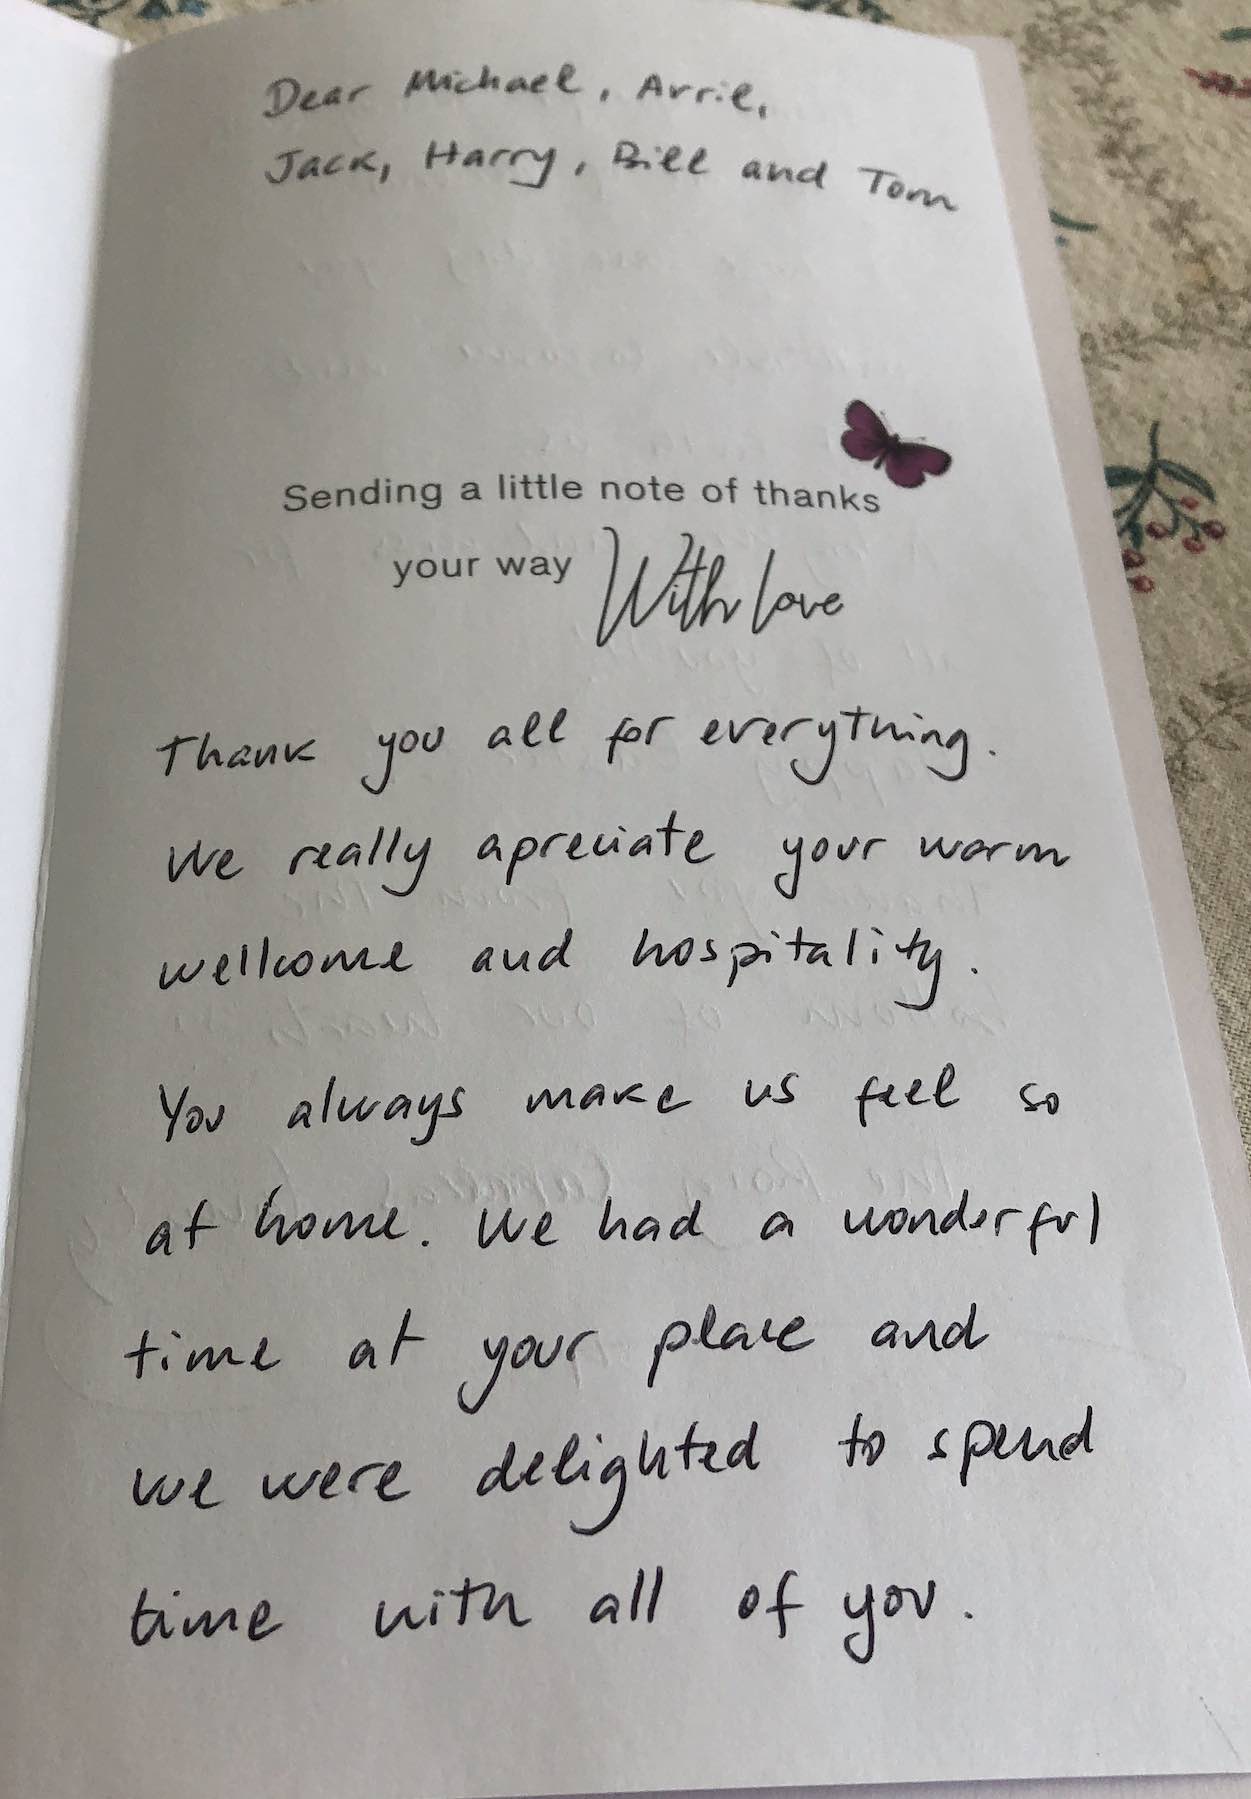 Dear Michael, Arrie,
Jack, Harry, Bill and Tom
Sending a little note of thanks
your way With love
Thank you all for everything.
We really apreciate your warm
wellcome and hospitality.
You always make us feel so
at home. We had a wonderful
time at your place and
we were delighted to spend
time with all of you.